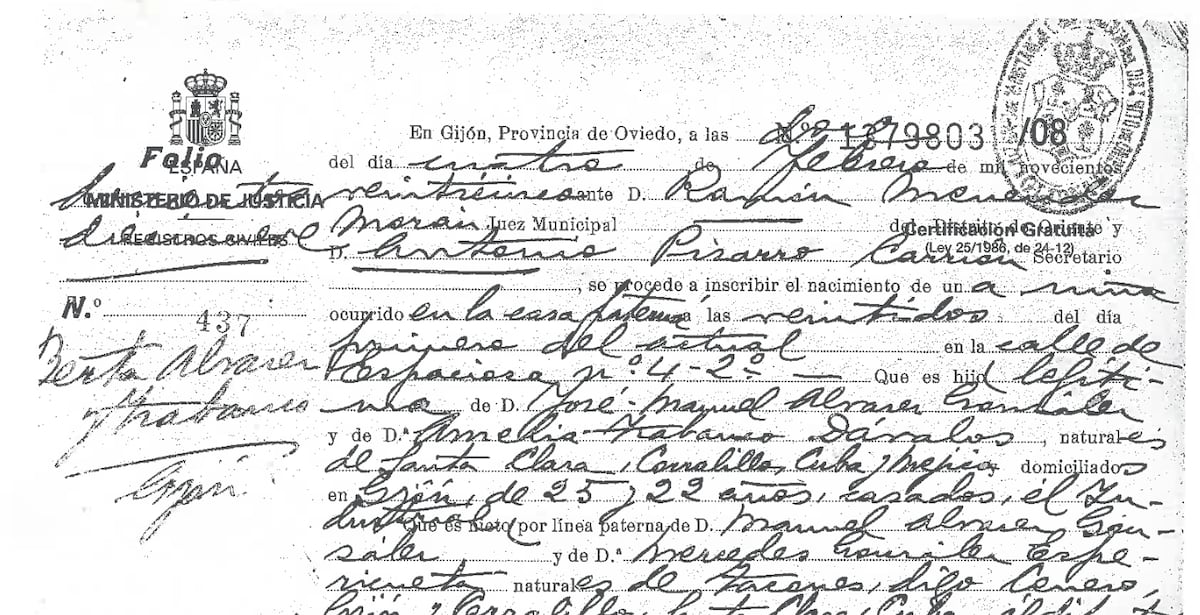 En Gijón, Provincia de Oviedo, a las doce
Nº 1379803 /08
Folio
ESPAÑA
del día cuatro de febrero de mil novecientos
MINISTERIO DE JUSTICIA
veinticinco ante D. Ramón Menéndez
diecinueve
REGISTROS CIVILES
Morán Juez Municipal del Distrito de Oriente y
Certificación Gratuita
(Ley 25/1986, de 24-12)
D. Antonio Pizarro Carrión Secretario
, se procede a inscribir el nacimiento de un a niña
N.º 437
ocurrido en la casa paterna a las veintidós del día
primero del actual en la calle de
Berta Alvarez
Espaciosa nº 4-2º — Que es hija legíti-
Trabanco
ma de D. José-Manuel Alvarez González
y de D.ª Amelia Trabanco Dávalos, naturales
de Santa Clara, Corralillo, Cuba y Mejico domiciliados
Gijón
en Gijón, de 25 y 22 años, casados, él In-
dustrial
Que es nieto por línea paterna de D. Manuel Alvarez Gon-
zález y de D.ª Mercedes González Espe-
naturales de digo Cenero